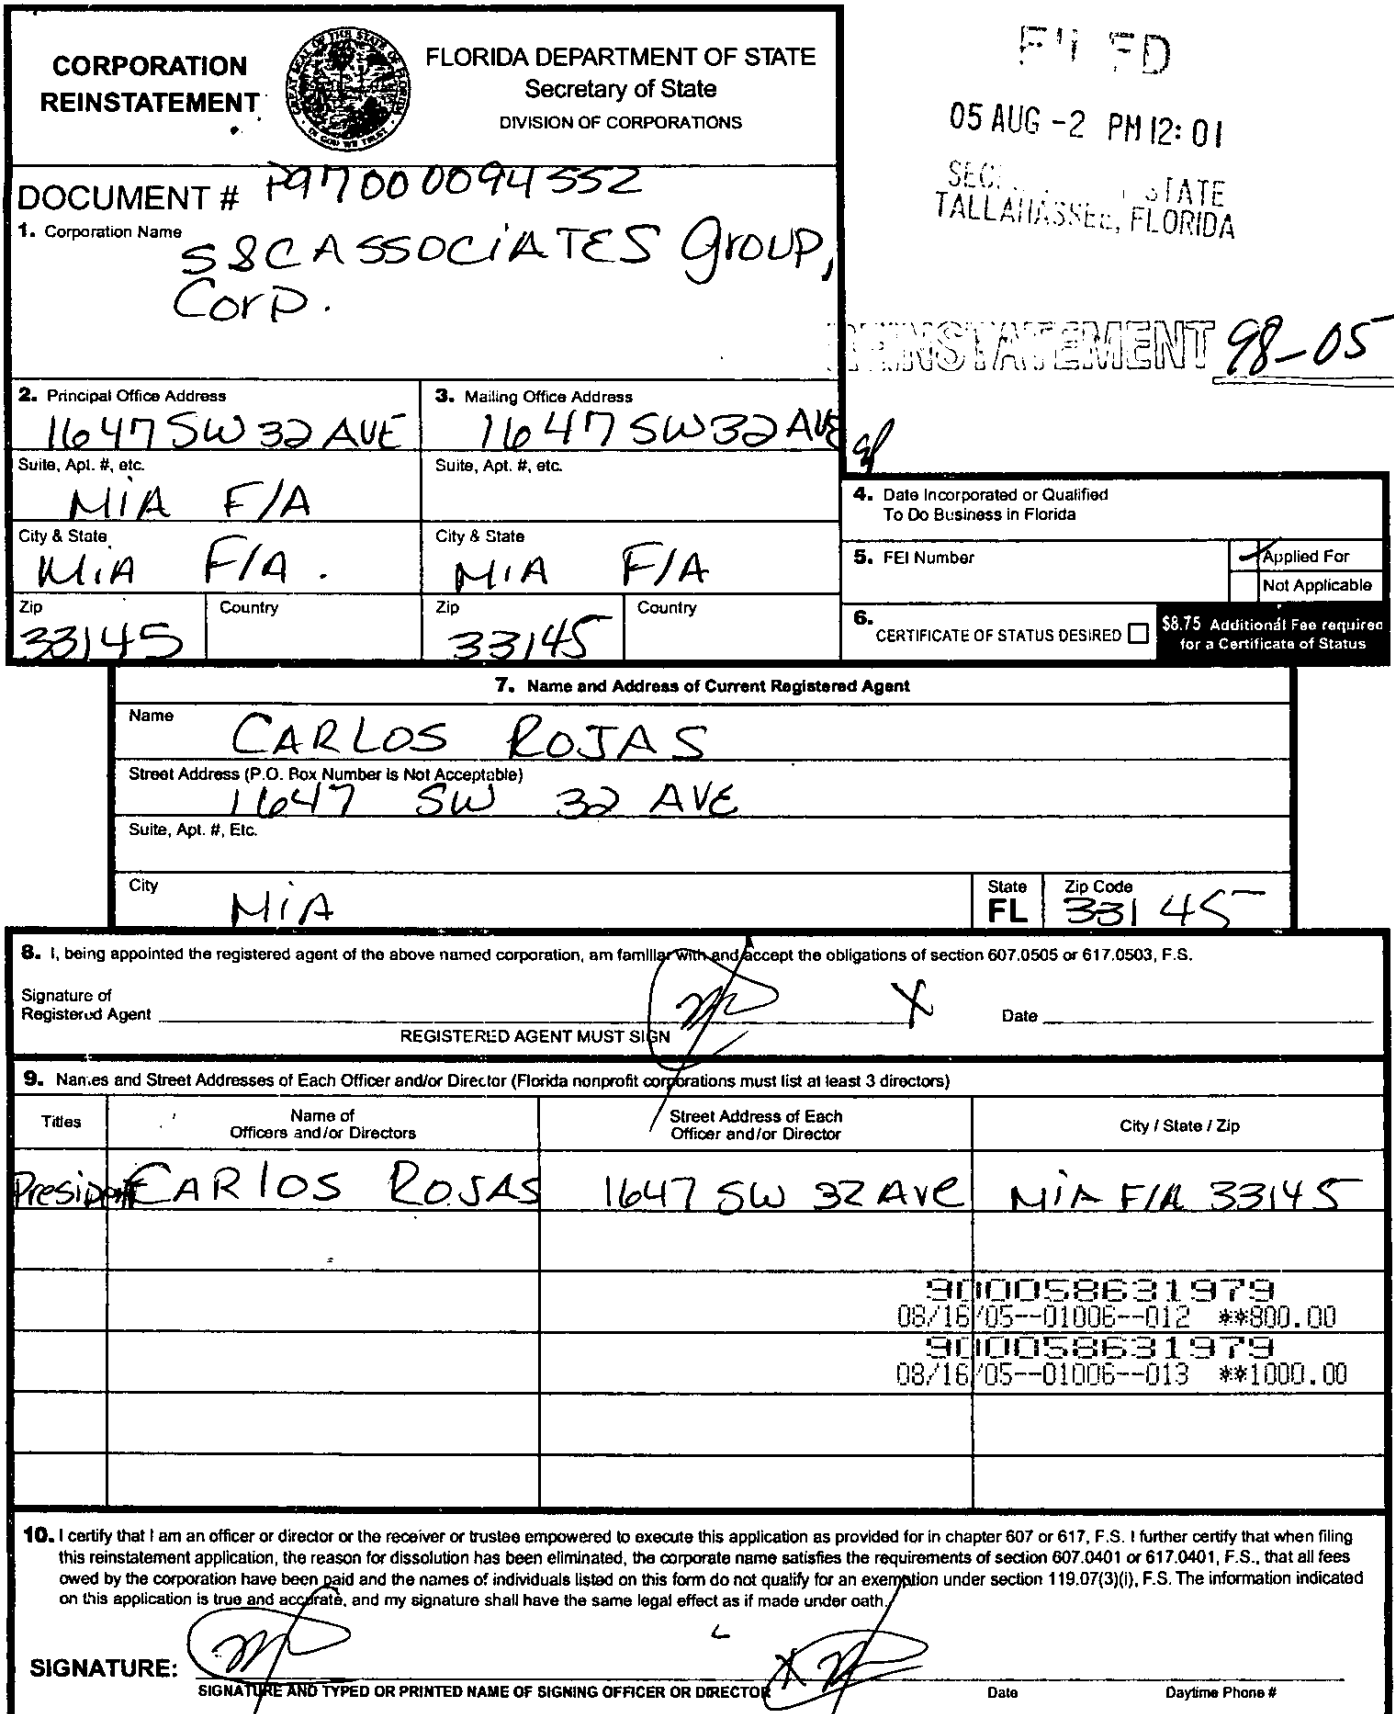 CORPORATION
REINSTATEMENT
GREAT SEAL OF THE STATE OF FLORIDA
IN GOD WE TRUST
FLORIDA DEPARTMENT OF STATE
Secretary of State
DIVISION OF CORPORATIONS
05 AUG -2 PM 12:01
STATE
TALLAHASSEE, FLORIDA
DOCUMENT # P97000094552
1. Corporation Name
S&C ASSOCiATES Group,
Corp.
REINSTATEMENT 98-05
2. Principal Office Address
1647 SW 32 AVE
3. Mailing Office Address
1647 SW 32 AVE
Suite, Apt. #, etc.
MiA F/A
Suite, Apt. #, etc.
City & State
MiA F/A.
City & State
MiA F/A
Zip
33145
Country
Zip
33145
Country
4. Date Incorporated or Qualified
To Do Business in Florida
5. FEI Number
Applied For
Not Applicable
6.
CERTIFICATE OF STATUS DESIRED
$8.75 Additional Fee required
for a Certificate of Status
7. Name and Address of Current Registered Agent
Name
CARLOS ROJAS
Street Address (P.O. Box Number is Not Acceptable)
1647 SW 32 AVE
Suite, Apt. #, Etc.
City
MiA
State
FL
Zip Code
33145
8. I, being appointed the registered agent of the above named corporation, am familiar with and accept the obligations of section 607.0505 or 617.0503, F.S.
Signature of
Registered Agent
X
Date
REGISTERED AGENT MUST SIGN
9. Names and Street Addresses of Each Officer and/or Director (Florida nonprofit corporations must list at least 3 directors)
Titles
Name of
Officers and/or Directors
Street Address of Each
Officer and/or Director
City / State / Zip
President CARlOS ROJAS 1647 SW 32 AVe MiA F/A 33145
900058631979
08/16/05--01006--012 **800.00
900058631979
08/16/05--01006--013 **1000.00
10. I certify that I am an officer or director or the receiver or trustee empowered to execute this application as provided for in chapter 607 or 617, F.S. I further certify that when filing
this reinstatement application, the reason for dissolution has been eliminated, the corporate name satisfies the requirements of section 607.0401 or 617.0401, F.S., that all fees
owed by the corporation have been paid and the names of individuals listed on this form do not qualify for an exemption under section 119.07(3)(i), F.S. The information indicated
on this application is true and accurate, and my signature shall have the same legal effect as if made under oath.
SIGNATURE:
X
SIGNATURE AND TYPED OR PRINTED NAME OF SIGNING OFFICER OR DIRECTOR
Date
Daytime Phone #